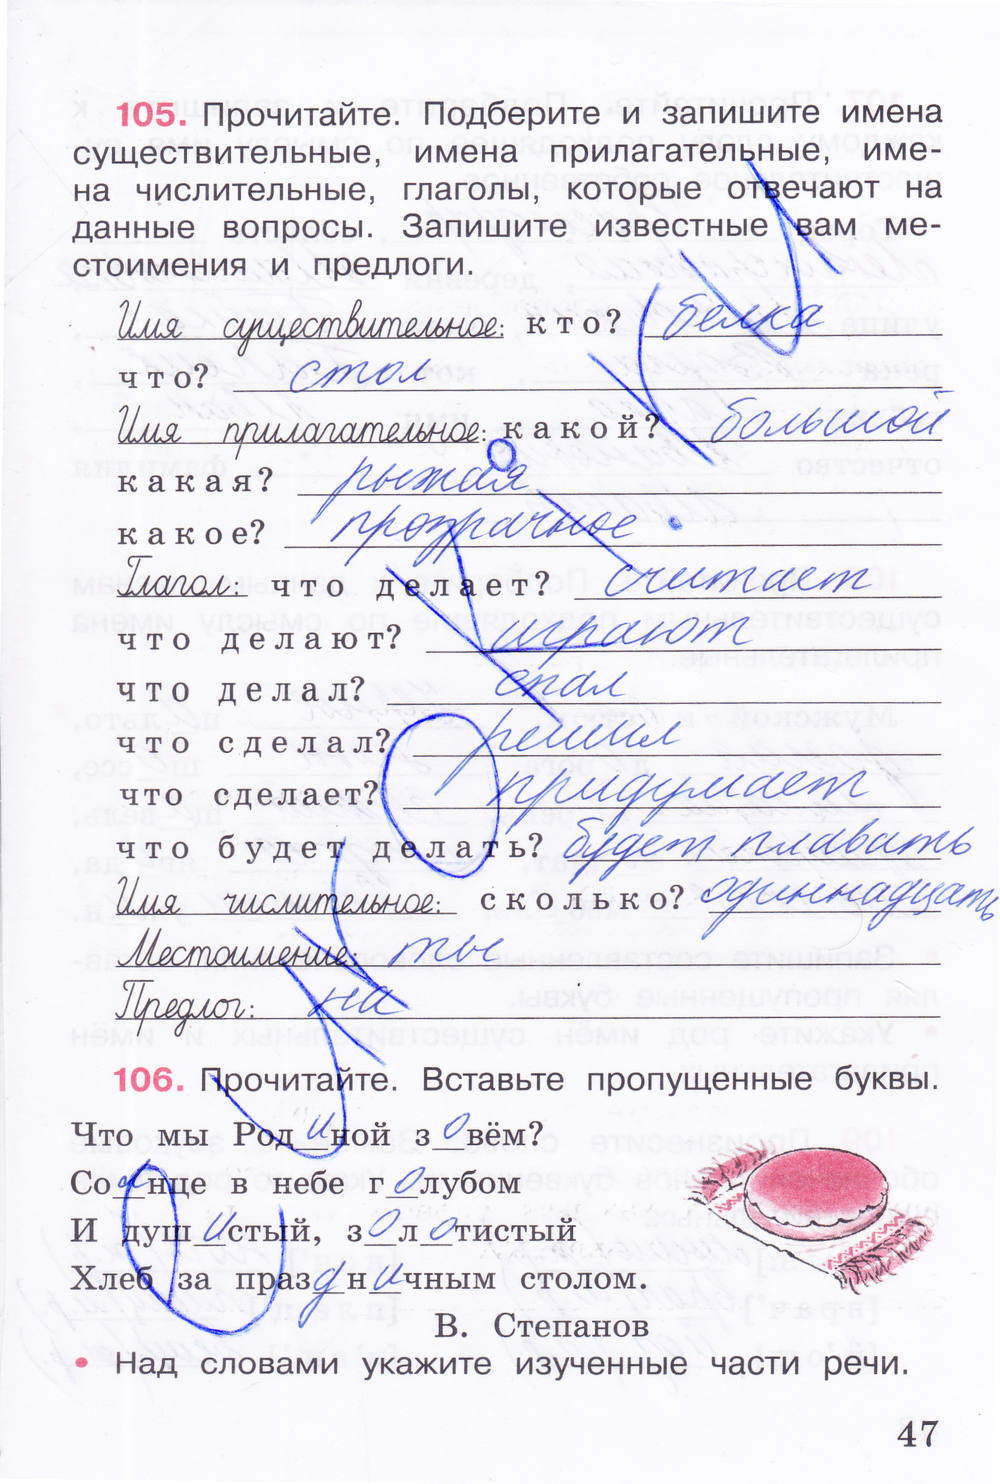 105. Прочитайте. Подберите и запишите имена
существительные, имена прилагательные, име-
на числительные, глаголы, которые отвечают на
данные вопросы. Запишите известные вам ме-
стоимения и предлоги.
Имя существительное: кто? белка
что? стол
Имя прилагательное: какой? большой
какая? рыжая
какое? прозрачное
Глагол: что делает? считает
что делают? играют
что делал? спал
что сделал? решил
что сделает? придумает
что будет делать? будет плавать
Имя числительное: сколько? одиннадцать
Местоимение: ты
Предлог: на
106. Прочитайте. Вставьте пропущенные буквы.
Что мы Родиной зовём?
Солнце в небе голубом
И душистый, золотистый
Хлеб за праздничным столом.
В. Степанов
• Над словами укажите изученные части речи.
47